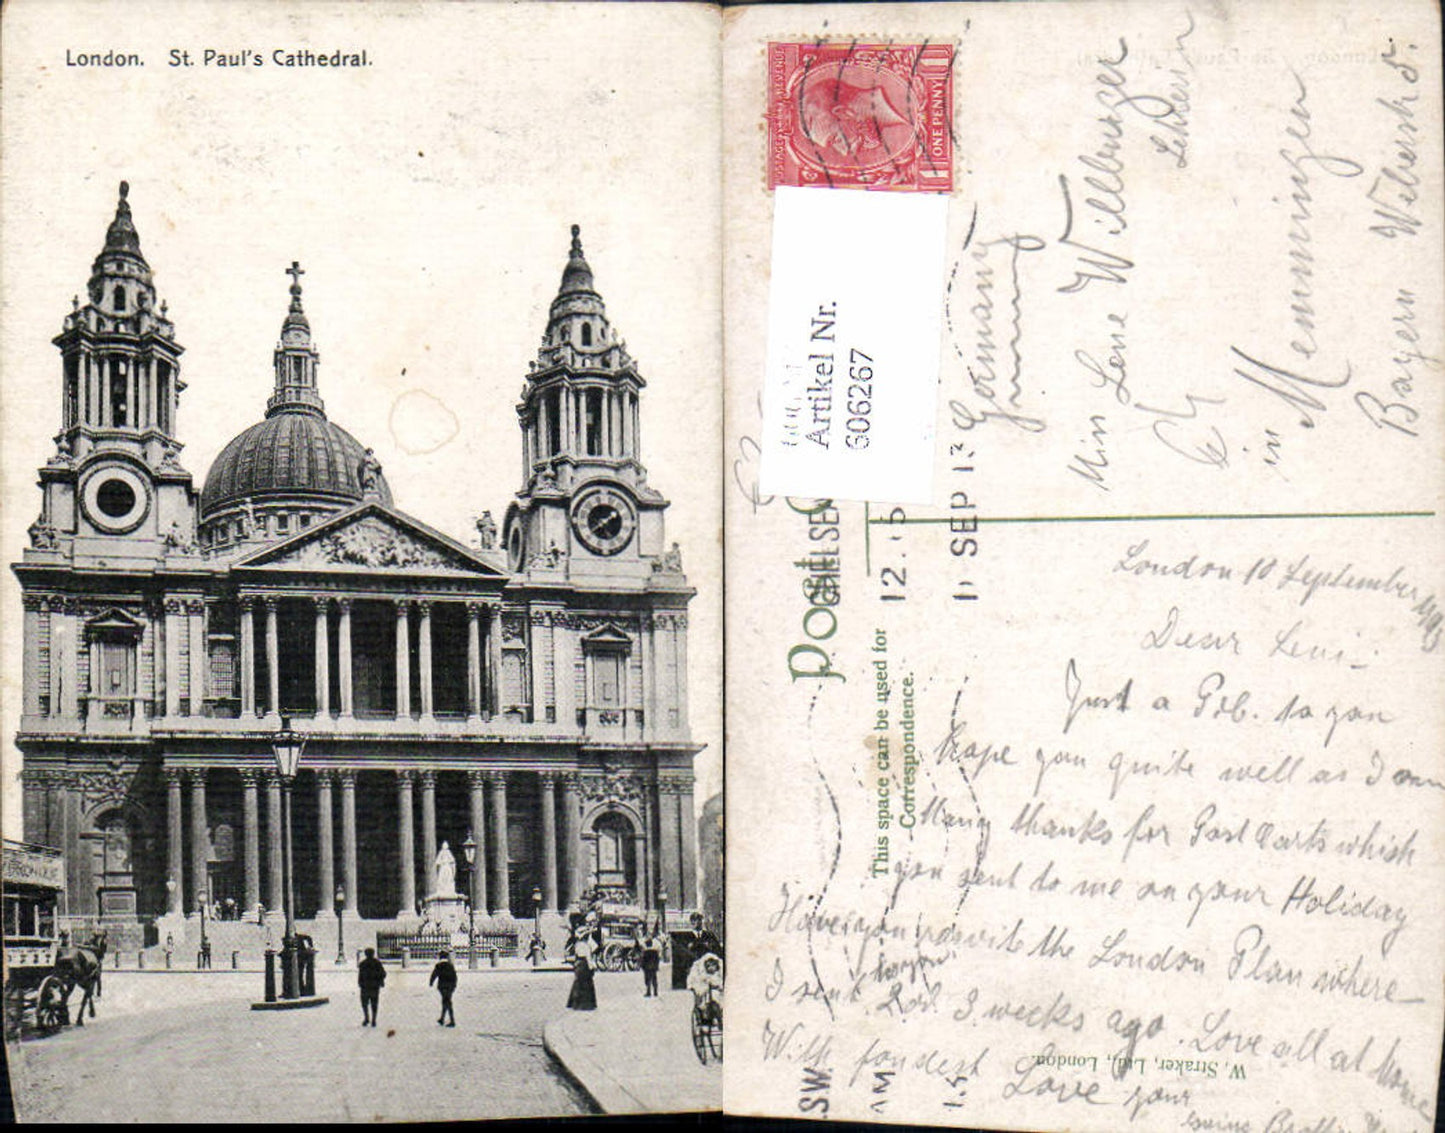 London. St. Paul's Cathedral.
POSTAGE REVENUE
ONE PENNY
Artikel Nr.
606267
Post
This space can be used for
Correspondence.
12.15
11 SEP 13
S.W.
AM
Germany
Miss Lene Wilburger
in Memmingen
Bayern
London 10 September
Dear Leni
Just a to you
hope you quite well as I am
Many thanks for Post Carts which
you sent to me on your Holiday
Have you the London Plan where
I sent 3 weeks ago. Love all at home
With fondest Love your
W. Straker, Ltd., London.